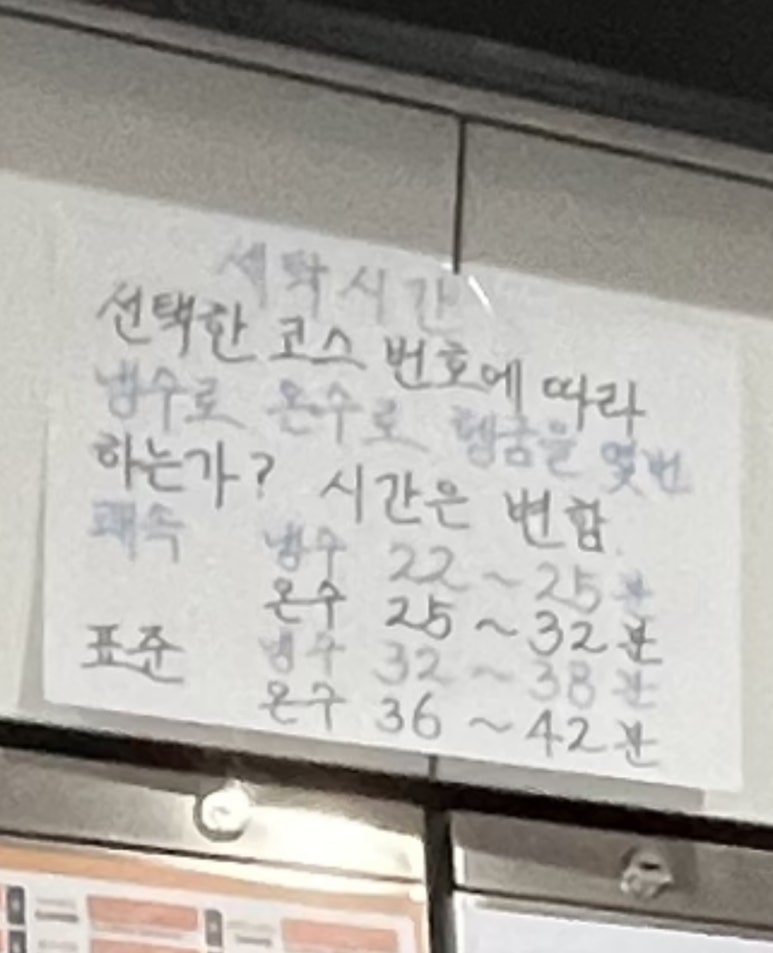 세탁시간
선택한 코스 번호에 따라
냉수로 온수로 헹굼을 몇번
하는가? 시간은 변함
쾌속 냉수 22 ~ 25분
온수 25 ~ 32분
표준 냉수 32 ~ 38분
온수 36 ~ 42분